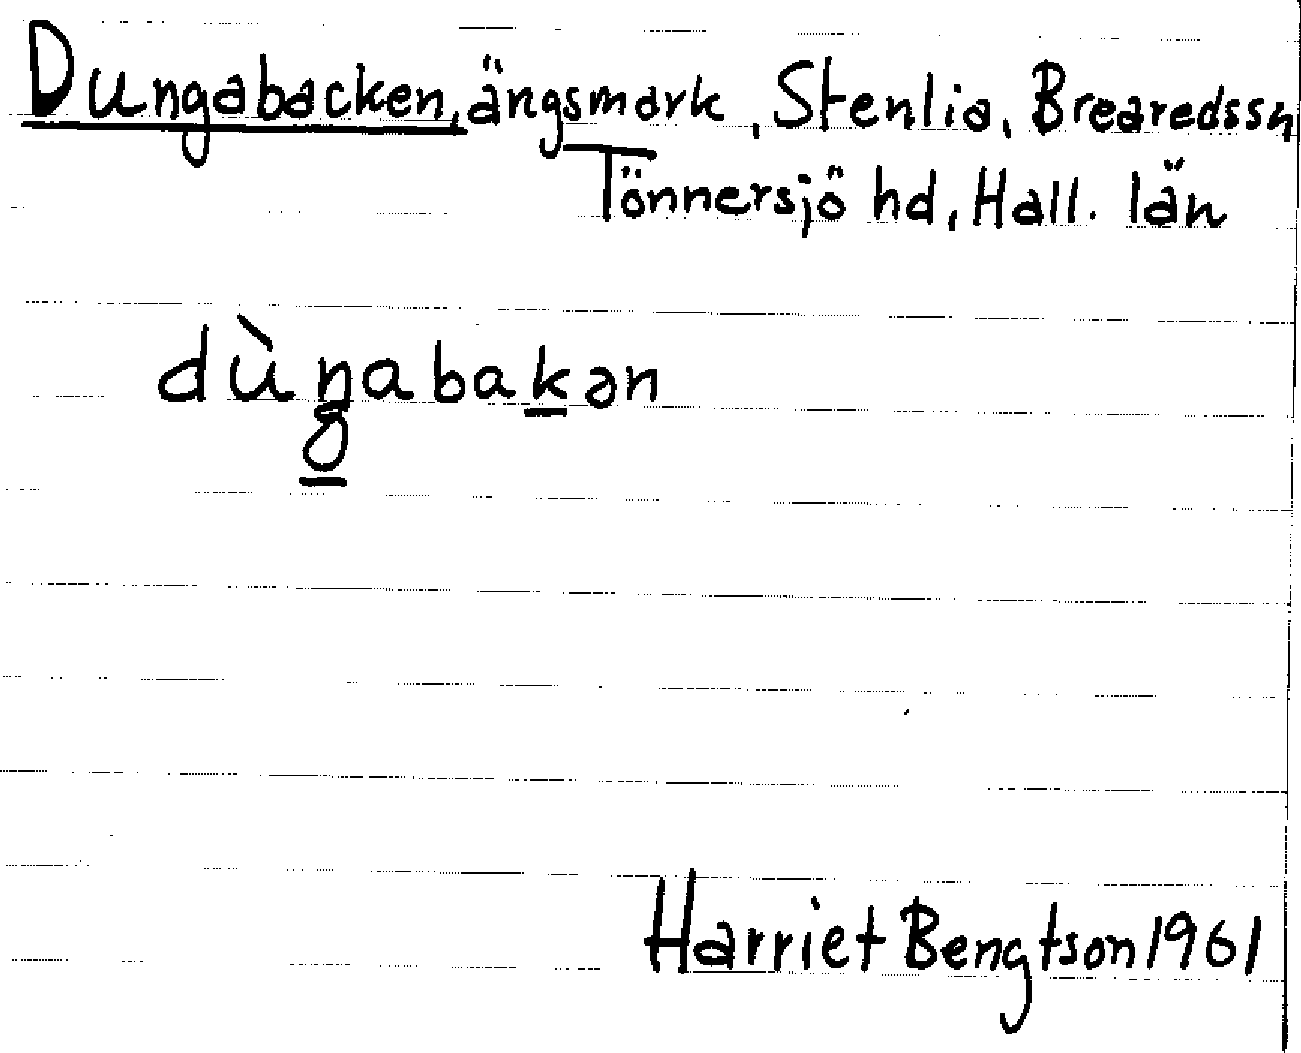 Dungabacken, ängsmark, Stenlia, Brearedssn
Tönnersjö hd, Hall. län
dùŋabakən
Harriet Bengtson 1961